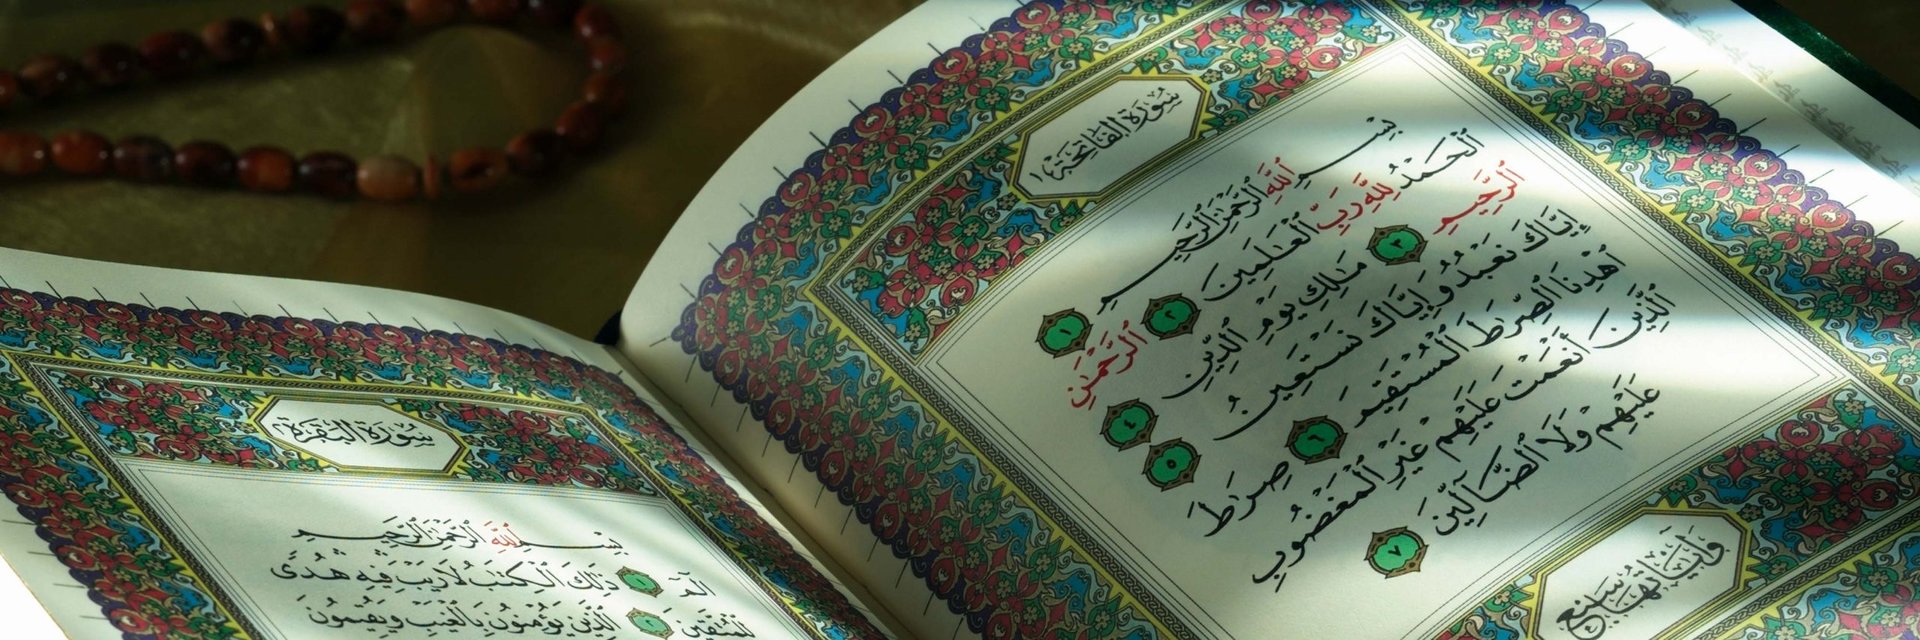 سُورَةُ الْفَاتِحَةِ ١
بِسْمِ ٱللَّهِ ٱلرَّحْمَٰنِ ٱلرَّحِيمِ ١
ٱلْحَمْدُ لِلَّهِ رَبِّ ٱلْعَٰلَمِينَ ٢ ٱلرَّحْمَٰنِ
ٱلرَّحِيمِ ٣ مَٰلِكِ يَوْمِ ٱلدِّينِ ٤
إِيَّاكَ نَعْبُدُ وَإِيَّاكَ نَسْتَعِينُ ٥
ٱهْدِنَا ٱلصِّرَٰطَ ٱلْمُسْتَقِيمَ ٦ صِرَٰطَ
ٱلَّذِينَ أَنْعَمْتَ عَلَيْهِمْ غَيْرِ ٱلْمَغْضُوبِ
عَلَيْهِمْ وَلَا ٱلضَّآلِّينَ ٧
وَآيَاتُهَا سَبْعٌ
سُورَةُ الْبَقَرَةِ
بِسْمِ ٱللَّهِ ٱلرَّحْمَٰنِ ٱلرَّحِيمِ
الٓمٓ ١ ذَٰلِكَ ٱلْكِتَٰبُ لَا رَيْبَ فِيهِ هُدًى
لِّلْمُتَّقِينَ ٢ ٱلَّذِينَ يُؤْمِنُونَ بِٱلْغَيْبِ وَيُقِيمُونَ